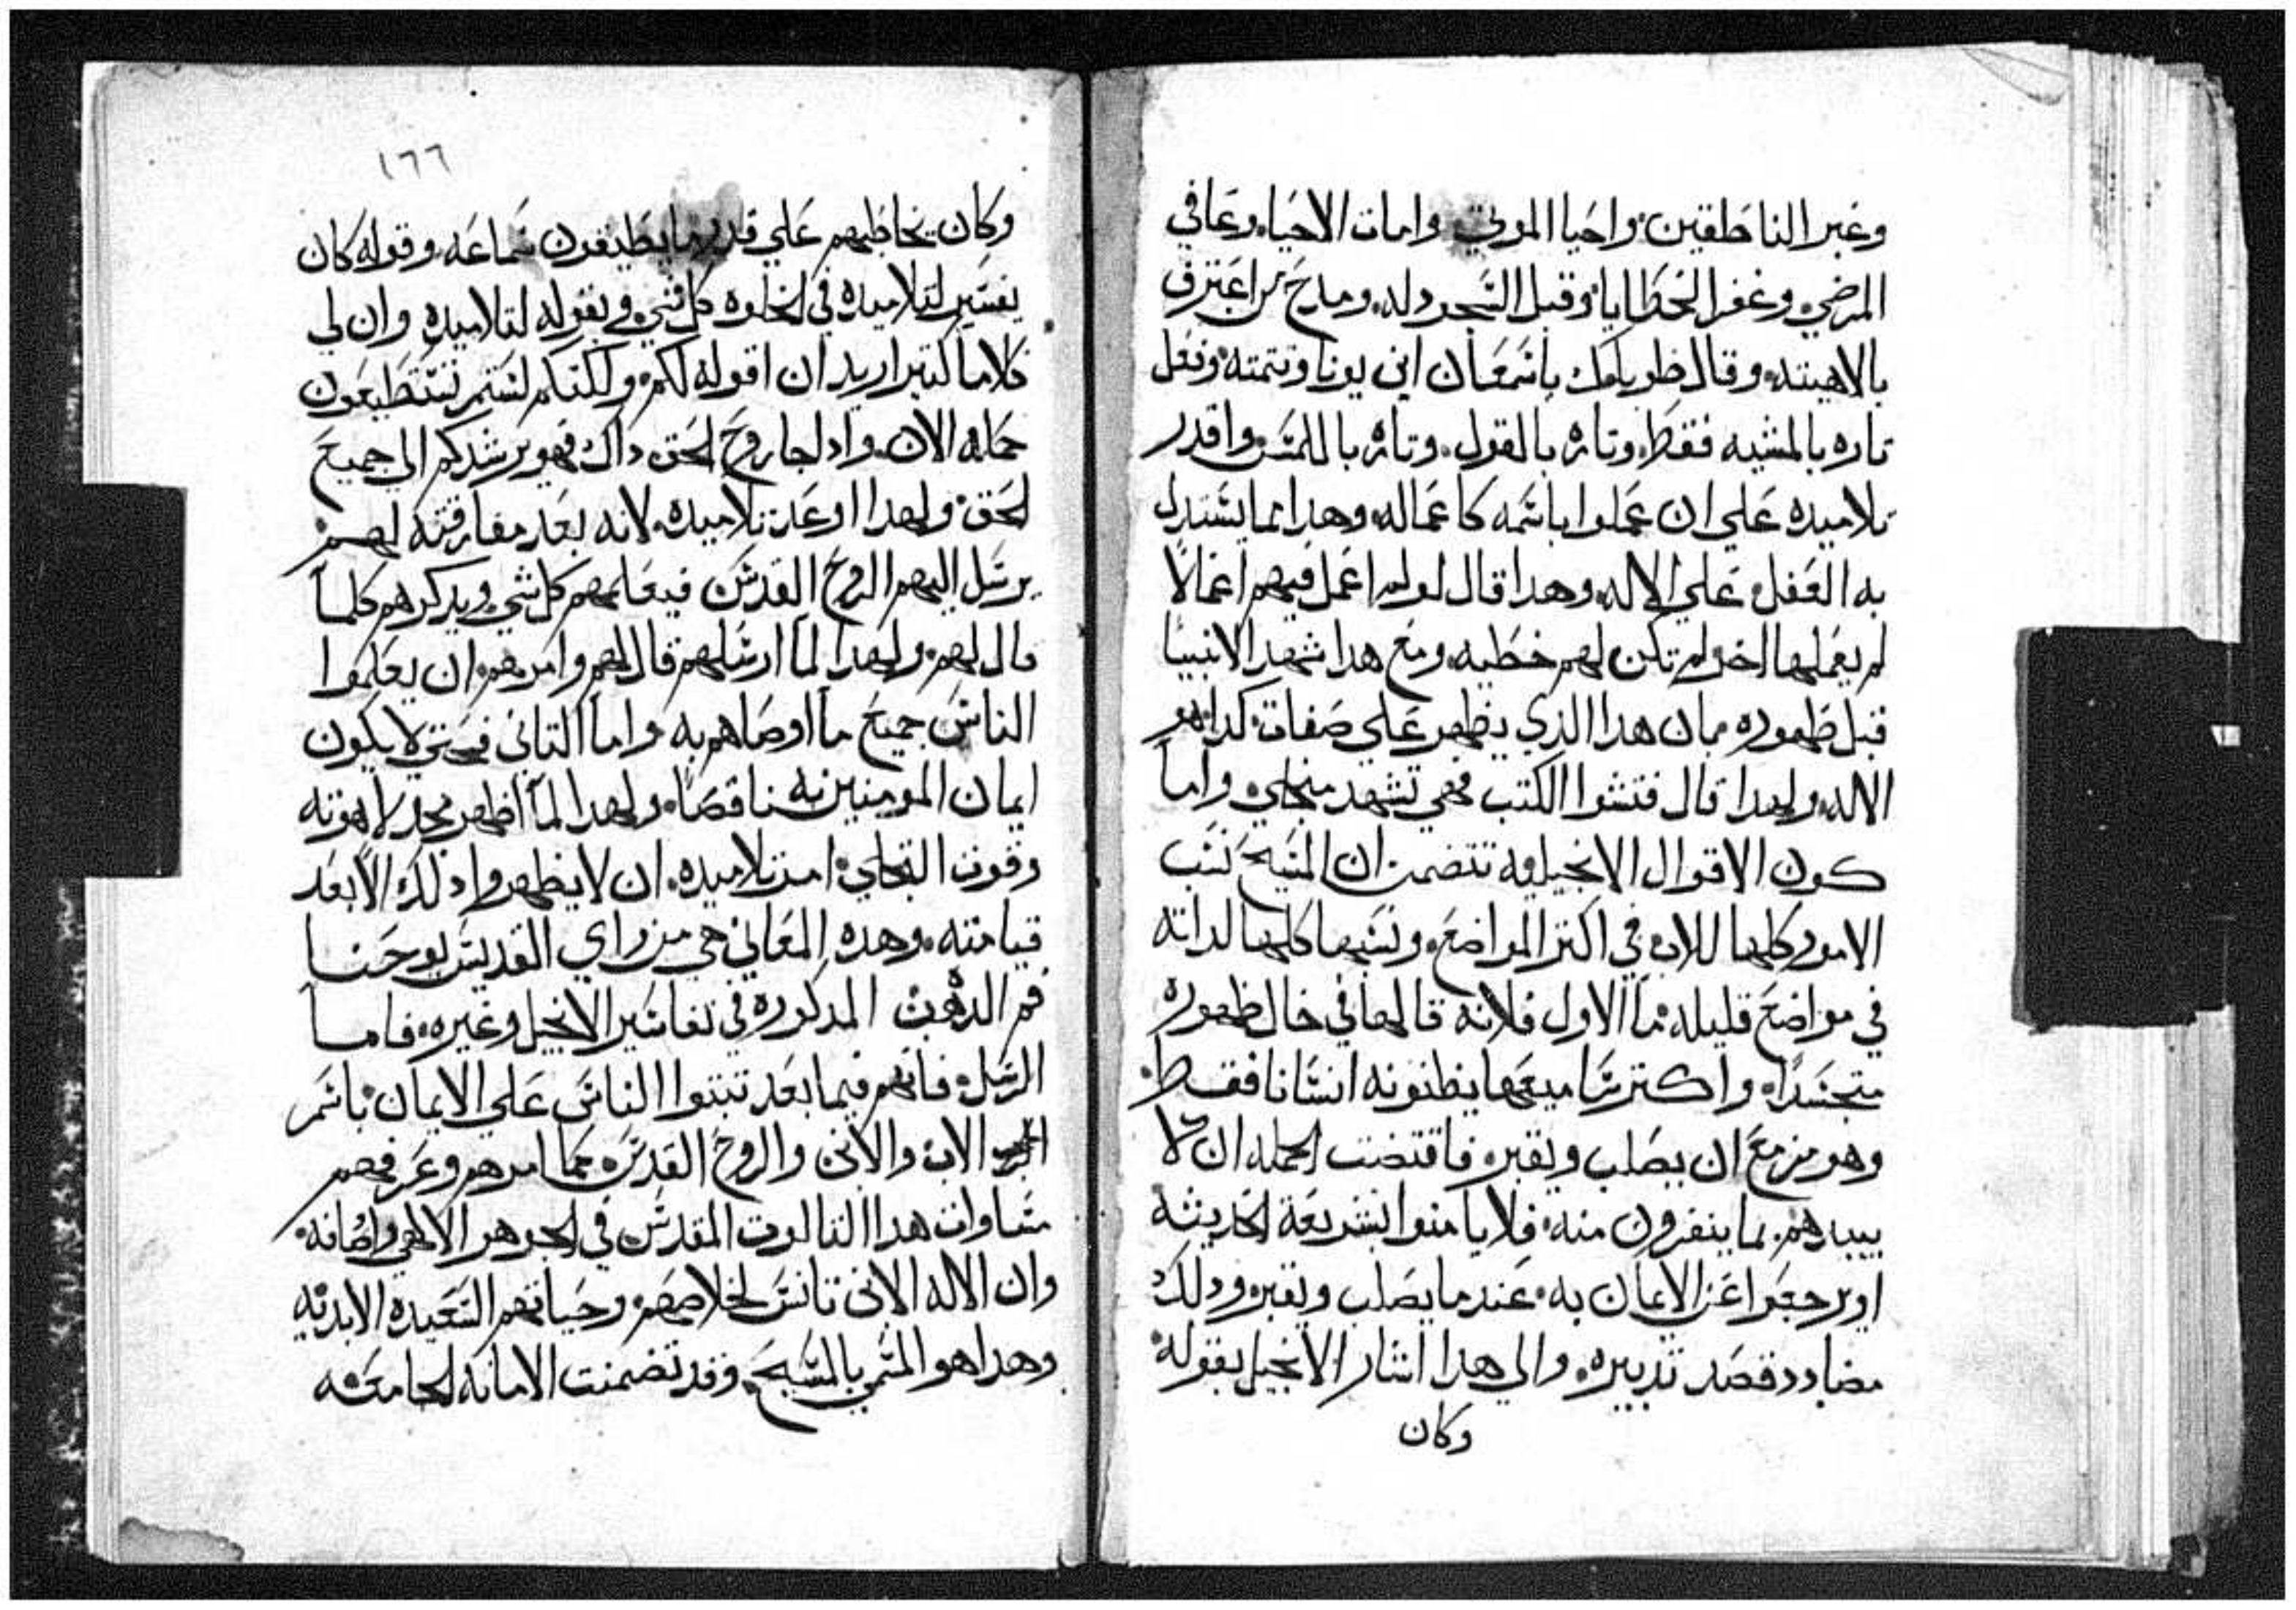 وغير الناطقين واحيا الموتي وامات الاحيا وعافي
المرضي وغفر الخطايا وقبل السجود له ومدح من اعترف
بالاهيته وقال طوباك ياسمعان ابن يونا وتتمته وفعل
تاره بالمشيه فقط وتاره بالقول وتاره باللمس واقدر
تلاميده علي ان عملوا باسمه كاعماله وهدا مما يستدل
به العقل علي الاله وهدا قال لولم اعمل فيهم اعمالاً
لم يعملها اخر لم تكن لهم خطيه ومع هدا شهد الانبيا
قبل ظهوره بان هدا الذي يظهر علي صفات كدا هو
الاله ولهدا قال فتشوا الكتب فهي تشهد من اجلي واما
كون الاقوال الانجيليه تتضمن ان المسيح نسب
الامور كلها للاب في اكتر المواضع ونسبها كلها لداته
في مواضع قليله اما الاول فلانه قالها في حال ظهوره
متجسداً واكتر سامعيها يظنونه انسانا فقط
وهو مزمع ان يصلب ويقبر فاقتضت الحكمه ان لا
يبيدهم بما ينفرون منه فلا يامنوا بشريعة الحديثه
او يرجعوا عن الايمان به عندما يصلب ويقبر ودلك
مضادد قصد تدبيره والي هدا اشار الانجيل بقوله
وكان
١٦٦
وكان يخاطبهم علي قدر ما يطيقون سماعه وقوله كان
يفسر لتلاميده في الخلوه كل شي وبقوله لتلاميده وان لي
كلاماً كتير اريد ان اقوله لكم ولكنكم لستم تستطيعون
حمله الان واد اجا روح الحق داك فهو يرشدكم الي جميع
الحق ولهدا اوعد تلاميده لانه بعد مفارقته لهم
يرسل اليهم الروح القدس فيعلمهم كل شي ويدكرهم كلما
قال لهم ولهدا لما ارسلهم قال لهم وامرهم ان يعلموا
الناس جميع ما اوصاهم به واما التاني فحتي لا يكون
ايمان المومنين به ناقصا ولهدا لما اظهر مجد لاهوته
وقوت التجلي امر تلاميده ان لا يظهروا دلك الا بعد
قيامته وهده المعاني هي من راي القديس يوحنا
فم الدهب المدكوره في تفاسير الانجيل وغيره فاما
الرسل فانهم فيما بعد تبتوا الناس علي الايمان باسم
الاب والابن والروح القدس كما امرهم وعرفهم
مساوات هدا التالوت المقدس في الجوهر الالهي واضانه
وان الاله الابن تانس لخلاصهم وحياتهم السعيده الابديه
وهدا هو المسمي بالمسيح وقد تضمنت الامانه الجامعه